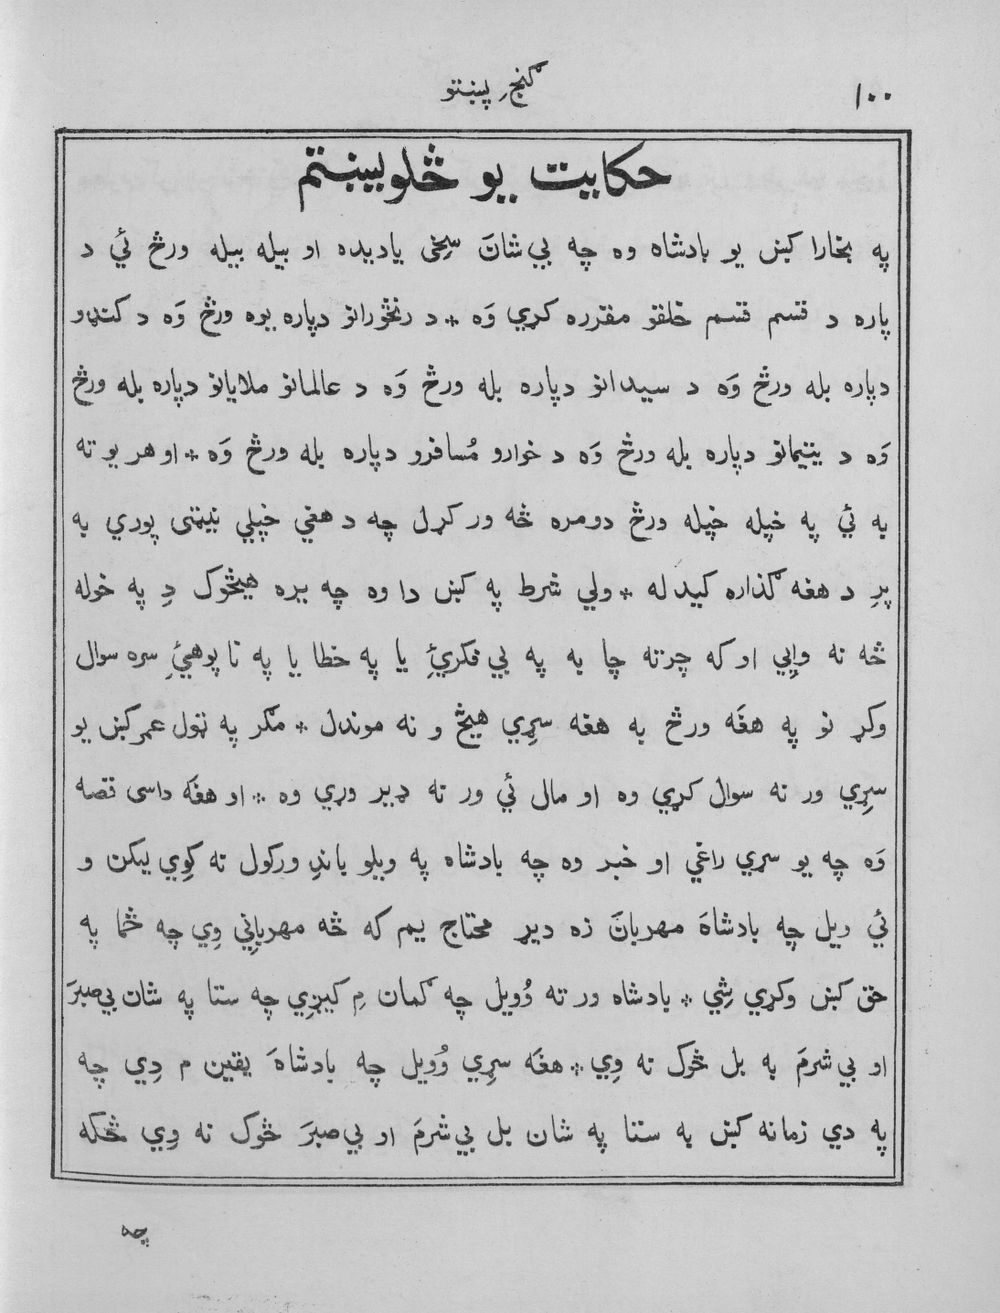 ۱۰۰
گنجِ پښتو
حکایت یو څلویښتم
په بخارا کښ یو بادشاه وه چه بي شانَ سخی یادیده او بیله بیله ورځ ئي د
پاره د قسم قسم خلقو مقرره کړي وَه * د رنځورانو دپاره یوه ورځ وَه د کنډو
دپاره بله ورځ وَه د سیدانو دپاره بله ورځ وَه د عالمانو ملایانو دپاره بله ورځ
وَه د یتیمانو دپاره بله ورځ وَه د خوارو مُسافرو دپاره بله ورځ وَه * او هر یو ته
به ئي په خپله خپله ورځ دومره څه ورکړل چه د هغي خپلي نیټی پوري به
پرِ د هغه گذاره کیدله * ولي شرط په کښ دا وه چه بره هیڅوک دِ په خوله
څه نه وایي او که چرته چا به په بي فکرئِ یا په خطا یا په ناپوهئِ سره سوال
وکړ نو په هغَه ورځ به هغه سړي هیڅ و نه موندل * مگر په ټول عمر کښ یو
سړِي ور ته سوال کړي وه او مال ئي ور نه ډیر وړي وه * او هغَه داسی قصه
وَه چه یو سړي راغي او خبر وه چه بادشاه په ویلو باندِ ورکول نه کوِي لیکن و
ئي ویل چه بادشاهَ مهربانَ زه ډیر محتاج یم که څه مهرباني وِي چه څما په
حق کښ وکړي شِي * بادشاه ور ته وُویل چه گمان مِ کیږي چه ستا په شان بي صبرَ
او بي شرمَ به بل څوک نه وِي * هغَه سړِي وُویل چه بادشاهَ یقین م دِي چه
په دي زمانه کښ به ستا په شان بل بي شرمَ او بي صبرَ څوک نه وِي ځکه
چه